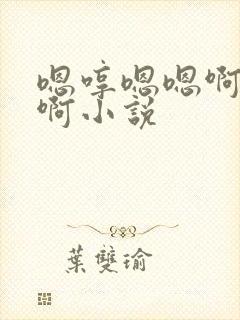 嗯哼嗯嗯啊
啊小説
葉雙瑜